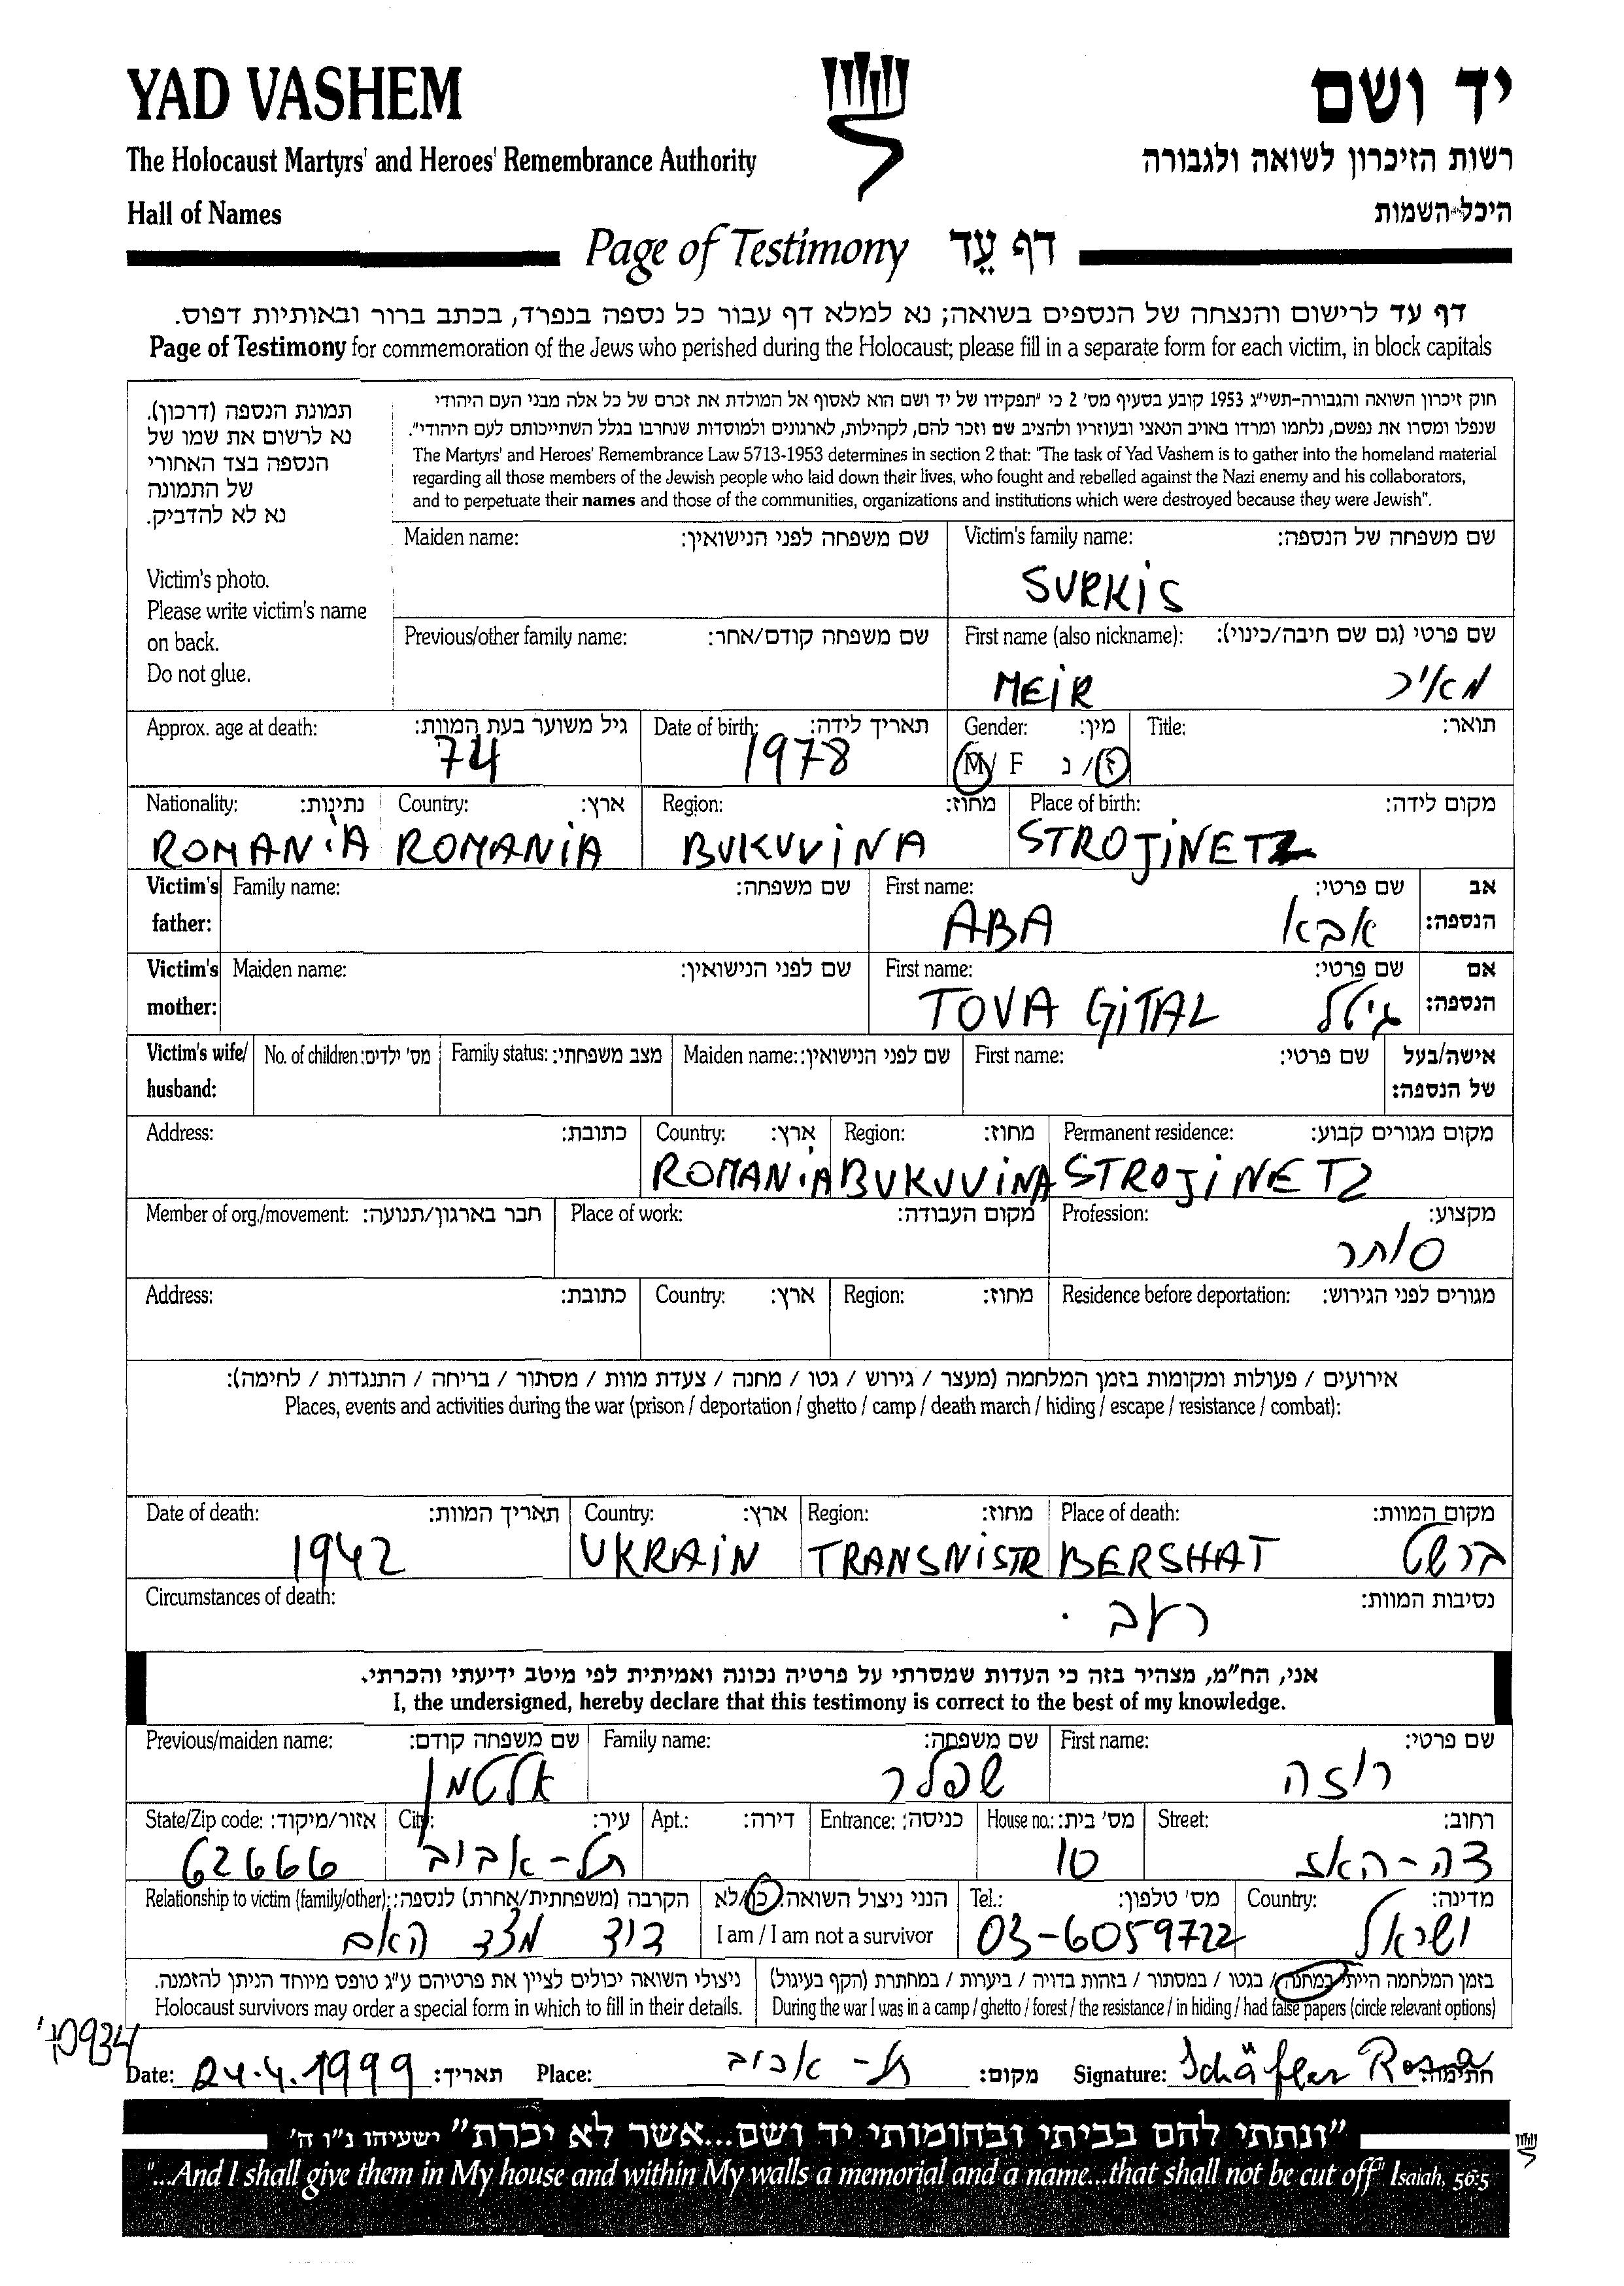 YAD VASHEM
יד ושם
The Holocaust Martyrs' and Heroes' Remembrance Authority
רשות הזיכרון לשואה ולגבורה
Hall of Names
היכל השמות
Page of Testimony דף עֵד
דף עד לרישום והנצחה של הנספים בשואה; נא למלא דף עבור כל נספה בנפרד, בכתב ברור ובאותיות דפוס.
Page of Testimony for commemoration of the Jews who perished during the Holocaust; please fill in a separate form for each victim, in block capitals
תמונת הנספה (דרכון).
נא לרשום את שמו של
הנספה בצד האחורי
של התמונה
נא לא להדביק.
Victim's photo.
Please write victim's name
on back.
Do not glue.
חוק זיכרון השואה והגבורה-תשי"ג 1953 קובע בסעיף מס' 2 כי "תפקידו של יד ושם הוא לאסוף אל המולדת את זכרם של כל אלה מבני העם היהודי
שנפלו ומסרו את נפשם, נלחמו ומרדו באויב הנאצי ובעוזריו ולהציב שם וזכר להם, לקהילות, לארגונים ולמוסדות שנחרבו בגלל השתייכותם לעם היהודי".
The Martyrs' and Heroes' Remembrance Law 5713-1953 determines in section 2 that: "The task of Yad Vashem is to gather into the homeland material
regarding all those members of the Jewish people who laid down their lives, who fought and rebelled against the Nazi enemy and his collaborators,
and to perpetuate their names and those of the communities, organizations and institutions which were destroyed because they were Jewish".
Maiden name: שם משפחה לפני הנישואין:
Victim's family name: שם משפחה של הנספה:
SURKIS
Previous/other family name: שם משפחה קודם/אחר:
First name (also nickname): שם פרטי (גם שם חיבה/כינוי):
MEIR מאיר
Approx. age at death: גיל משוער בעת המוות:
74
Date of birth: תאריך לידה:
1978
Gender: מין:
M/ F ז/ נ
Title: תואר:
Nationality: נתינות:
ROMANIA
Country: ארץ:
ROMANIA
Region: מחוז:
BUKUVINA
Place of birth: מקום לידה:
STROJINETZ
Victim's father: Family name: שם משפחה:
First name: שם פרטי: אב הנספה:
ABA אבא
Victim's mother: Maiden name: שם לפני הנישואין:
First name: שם פרטי: אם הנספה:
TOVA GITAL גיטל
Victim's wife/ husband: No. of children: מס' ילדים: Family status: מצב משפחתי: Maiden name: שם לפני הנישואין: First name: שם פרטי: אישה/בעל של הנספה:
Address: כתובת:
Country: ארץ:
ROMANIA
Region: מחוז:
BUKUVINA
Permanent residence: מקום מגורים קבוע:
STROJINETZ
Member of org./movement: חבר בארגון/תנועה: Place of work: מקום העבודה: Profession: מקצוע:
סוחר
Address: כתובת: Country: ארץ: Region: מחוז: Residence before deportation: מגורים לפני הגירוש:
אירועים / פעולות ומקומות בזמן המלחמה (מעצר / גירוש / גטו / מחנה / צעדת מוות / מסתור / בריחה / התנגדות / לחימה):
Places, events and activities during the war (prison / deportation / ghetto / camp / death march / hiding / escape / resistance / combat):
Date of death: תאריך המוות:
1942
Country: ארץ:
UKRAIN
Region: מחוז:
TRANSNISTR
Place of death: מקום המוות:
BERSHAT ברשט
Circumstances of death: נסיבות המוות:
רעב.
אני, הח"מ, מצהיר בזה כי העדות שמסרתי על פרטיה נכונה ואמיתית לפי מיטב ידיעתי והכרתי.
I, the undersigned, hereby declare that this testimony is correct to the best of my knowledge.
Previous/maiden name: שם משפחה קודם:
אלטמן
Family name: שם משפחה:
שפלר
First name: שם פרטי:
רוזה
State/Zip code: אזור/מיקוד:
62666
City: עיר:
תל-אביב
Apt.: דירה: Entrance: כניסה: House no.: מס' בית:
10
Street: רחוב:
דה-האז
Relationship to victim (family/other): הקרבה (משפחתית/אחרת) לנספה:
דוד מצד האב
הנני ניצול השואה: כן/לא
I am / I am not a survivor
Tel.: מס' טלפון:
03-6059722
Country: מדינה:
ישראל
ניצולי השואה יכולים לציין את פרטיהם ע"ג טופס מיוחד הניתן להזמנה.
Holocaust survivors may order a special form in which to fill in their details.
בזמן המלחמה הייתי במחנה / בגטו / במסתור / בזהות בדויה / ביערות / במחתרת (הקף בעיגול)
During the war I was in a camp / ghetto / forest / the resistance / in hiding / had false papers (circle relevant options)
Date: 24.4.1999 תאריך: Place: תל-אביב מקום: Signature: Schäfler Rosa חתימה:
"ונתתי להם בביתי ובחומותי יד ושם...אשר לא יכרת" ישעיהו נ"ו ה'
"...And I shall give them in My house and within My walls a memorial and a name...that shall not be cut off" Isaiah, 56:5